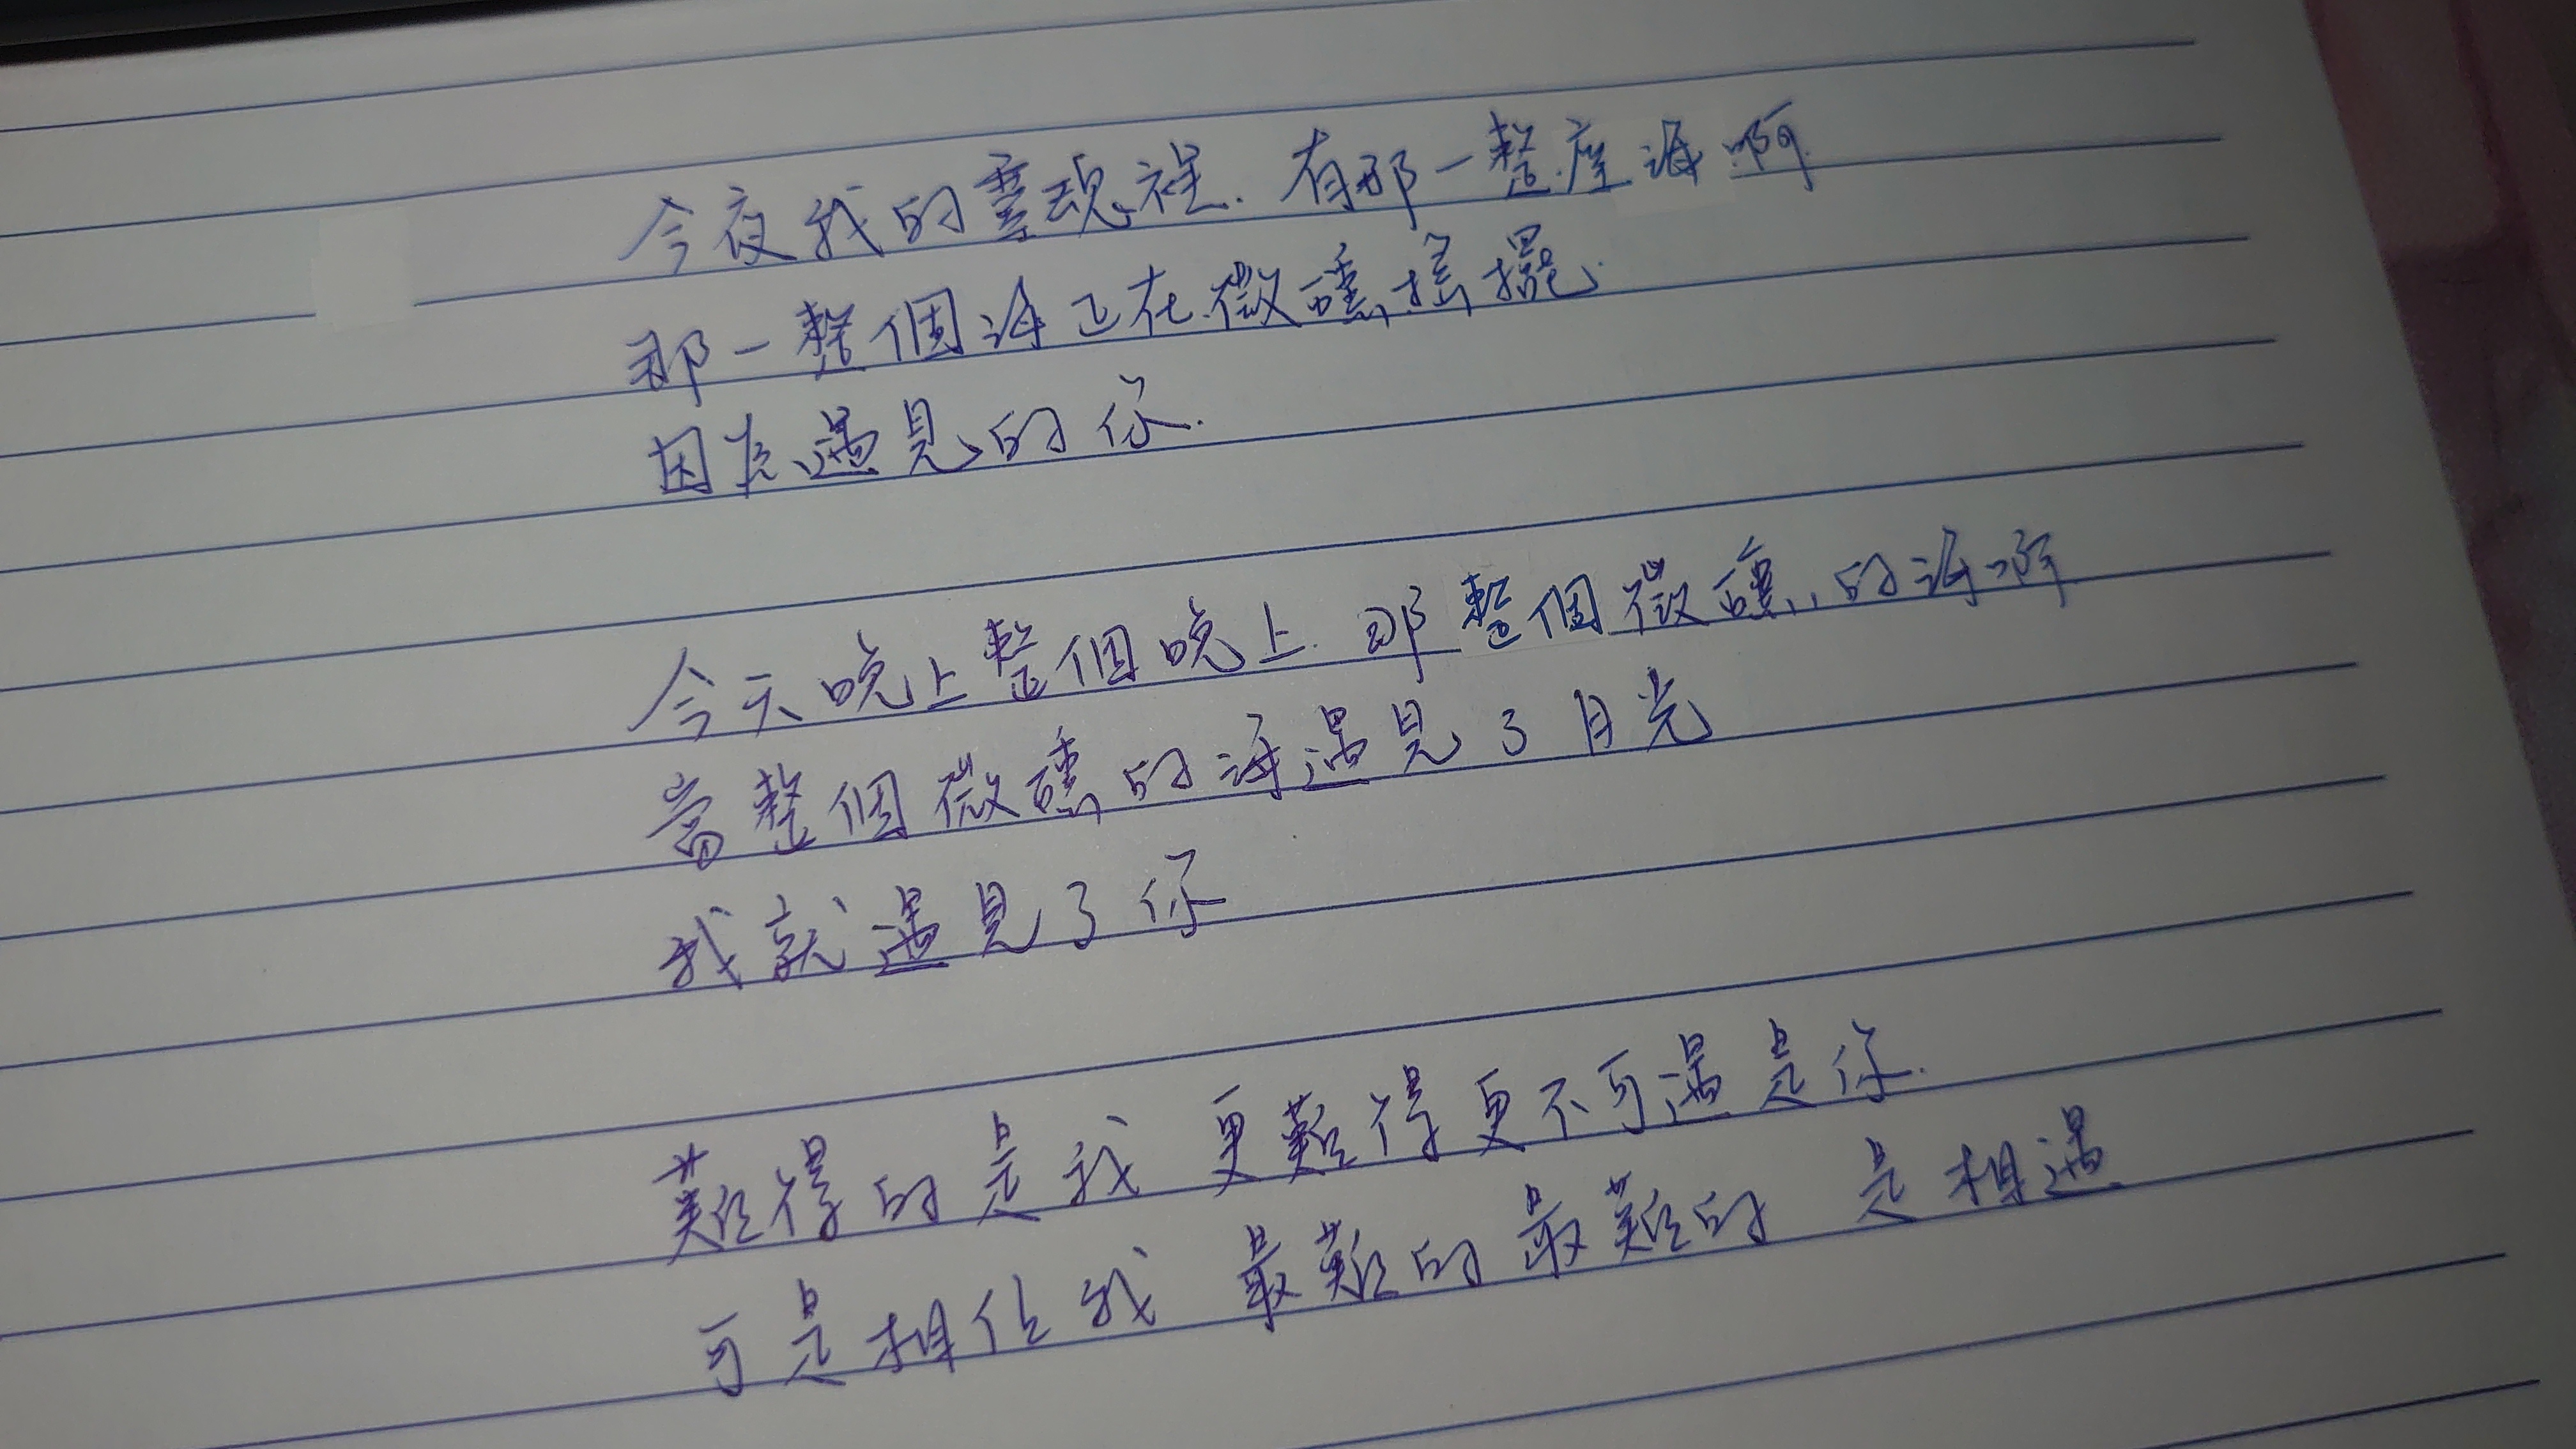 今夜我的靈魂裡.有那一整座海啊
那一整個海正在微醺搖擺.
因為遇見的你.
今天晚上整個晚上.那整個微醺的海啊
當整個微醺的海遇見了月光
我就遇見了你
難得的是我 更難得更不可遇是你.
可是相信我 最難的最難的 是相遇